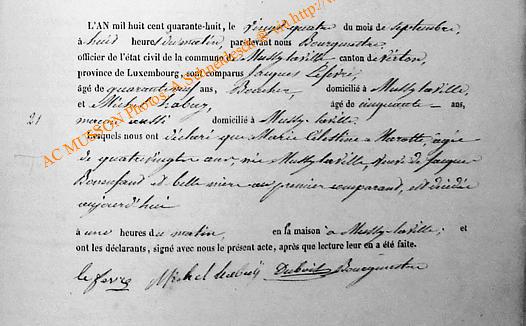 L'AN mil huit cent quarante-huit, le vingt quatre du mois de septembre,
à huit heures du matin, par-devant nous Bourguestre
officier de l'état civil de la commune de Mussy laville canton de Virton,
province de Luxembourg, sont comparus Jacques Lefevre,
âgé de quarante ans, Boucher, domicilié à Mussy laville
et Michel âgé de cinquante ans,
maçon aussi domicilié à Mussy laville
21
Lesquels nous ont déclaré que Marie Célestine Marotte, agée
de quatrevingts ans, née Mussy laville, veuve de Jacques
Bonenfant et belle mere au premier comparant, est décédée
aujourd'hui
à une heures du matin, en la maison à Mussy-laville; et
ont les déclarants, signé avec nous le présent acte, après que lecture leur en a été faite.
le fevre Michel Dubois Bourguestre
AC MUSSON Photos A. Schneidesch © via http://www.